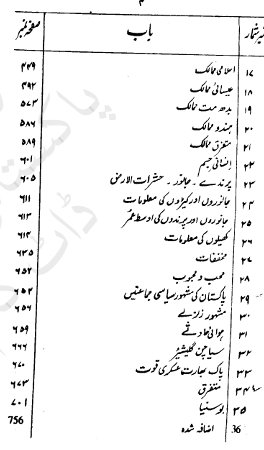 ۴
نمبر شمار باب صفحہ نمبر
۱۷ اسلامی ممالک ۴۴۹
۱۸ عیسائی ممالک ۴۹۲
۱۹ بدھ مت ممالک ۵۷۳
۲۰ ہندو ممالک ۵۸۶
۲۱ متفرق ممالک ۵۸۹
۲۲ انسانی جسم ۶۰۱
۲۳ پرندے ۔ جانور ۔ حشرات الارض ۶۰۵
۲۴ جانوروں اور کیڑوں کی معلومات ۶۱۱
۲۵ جانوروں اور پرندوں کی اوسط عمر ۶۱۳
۲۶ کھیلوں کی معلومات ۶۱۴
۲۷ مخففات ۶۳۵
۲۸ محب و محبوب ۶۵۲
۲۹ پاکستان کی مشہور سیاسی جماعتیں ۶۵۴
۳۰ مشہور زلزلے ۶۵۶
۳۱ ہوائی حادثے ۶۵۹
۳۲ سیاچین گلیشیئر ۶۶۶
۳۳ پاک بھارت عسکری قوت ۶۷۰
۳۴ متفرق ۶۷۳
۳۵ بوسنیا ۷۰۱
36 اضافہ شدہ 756